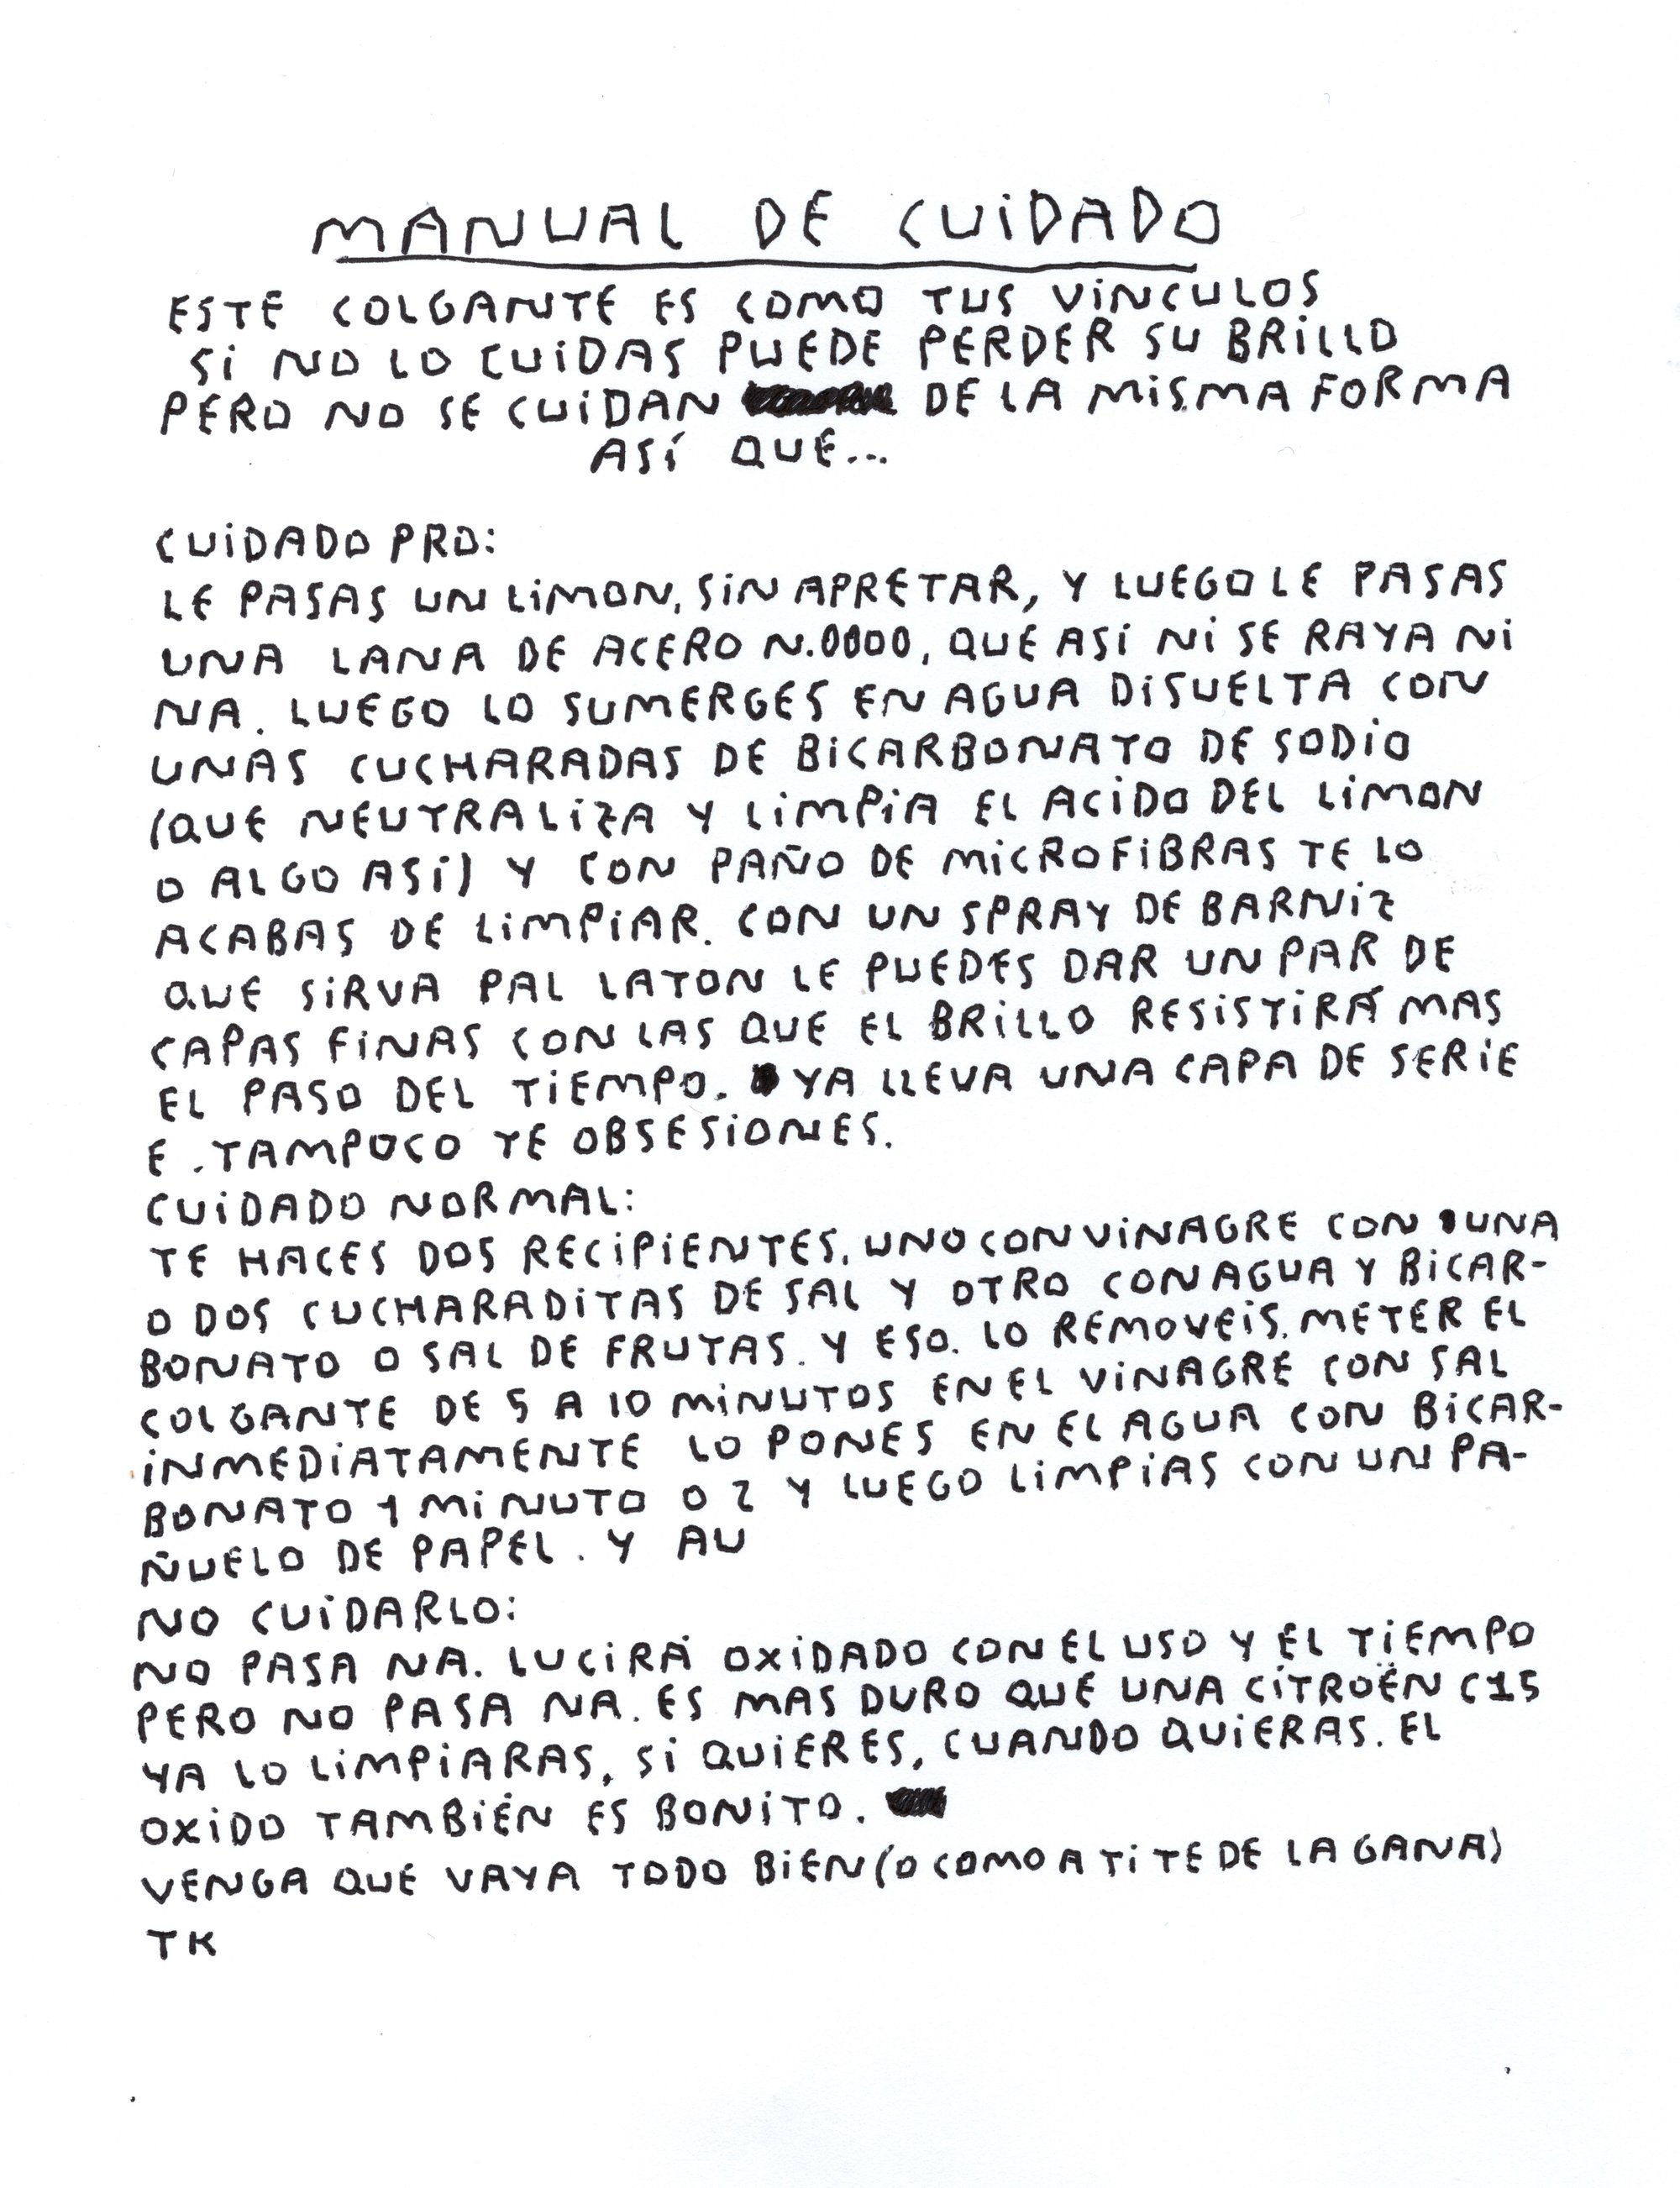 MANUAL DE CUiDADO
ESTE COLGANTE ES COMO TUS ViNCULOS
Si NO LO CUiDAS PUEDE PERDER SU BRiLLO
PERO NO SE CUiDAN DE LA MiSMA FORMA
ASÍ QUE...
CUiDADO PRO:
LE PASAS UN LiMON, SiN APRETAR, Y LUEGO LE PASAS
UNA LANA DE ACERO N.0000, QUE ASi Ni SE RAYA Ni
NA. LUEGO LO SUMERGES EN AGUA DiSUELTA CON
UNAS CUCHARADAS DE BiCARBONATO DE SODiO
(QUE NEUTRALiZA Y LiMPiA EL ACiDO DEL LiMON
O ALGO ASi) Y CON PAÑO DE MiCROFiBRAS TE LO
ACABAS DE LiMPiAR. CON UN SPRAY DE BARNiZ
QUE SiRVA PAL LATON LE PUEDES DAR UN PAR DE
CAPAS FiNAS CON LAS QUE EL BRiLLO RESiSTiRÁ MAS
EL PASO DEL TiEMPO. YA LLEVA UNA CAPA DE SERiE
E. TAMPOCO TE OBSESiONES.
CUiDADO NORMAL:
TE HACES DOS RECiPiENTES, UNO CON ViNAGRE CON UNA
O DOS CUCHARADiTAS DE SAL Y OTRO CON AGUA Y BiCAR-
BONATO O SAL DE FRUTAS. Y ESO. LO REMOVEiS. METER EL
COLGANTE DE 5 A 10 MiNUTOS EN EL ViNAGRE CON SAL
iNMEDiATAMENTE LO PONES EN EL AGUA CON BiCAR-
BONATO 1 MiNUTO O 2 Y LUEGO LiMPiAS CON UN PA-
ÑUELO DE PAPEL. Y AU
NO CUiDARLO:
NO PASA NA. LUCiRÁ OXiDADO CON EL USO Y EL TiEMPO
PERO NO PASA NA. ES MAS DURO QUE UNA CiTROËN C15
YA LO LiMPiARAS, Si QUiERES, CUANDO QUiERAS. EL
OXiDO TAMBiÉN ES BONiTO.
VENGA QUE VAYA TODO BiEN (O COMO A Ti TE DE LA GANA)
TK